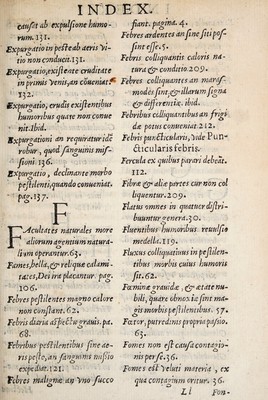 INDEX.
causet ab expulsione humorum. 131.
Expurgatio in peste ab aeris vitio non conducit. 131.
Expurgatio, existēte cruditate in primis venis, an cōueniat. 132.
Expurgatio, crudis existentibus humoribus quate non conuenit. Ibid.
Expurgationi an requiratur idē robur, quod sanguinis missioni. 136.
Expurgatio, declinante morbo pestilenti, quando conueniat. pag. 137.
F
FAcultates naturales more aliorum agentium naturalium operantur. 63.
Fames, bella, & reliquæ calamitates, Dei iræ plecantur. pag. 106.
Febres pestilentes magno calore non constant. 62.
Febris diaria aspectu grauis. pa. 68.
Febribus pestilentibus sine aeris peste, an sanguinis missio expediat. 121.
Febres malignæ an vno succo
fiant. pagina. 4.
Febres ardentes an sine siti possint esse. 5.
Febris colliquantis caloris natura & conditio. 209.
Febres colliquantes an marasmodes sint, & illarum signa & differentiæ. ibid.
Febribus colliquantibus an frigidæ potus conueniat 212.
Febris puncticularis, vide Puncticularis febris.
Fercula ex quibus parari debeāt. 112.
Fibræ & aliæ partes cur non colliquentur. 209.
Flatus omnes in quatuor distribuuntur genera. 30.
Fluentibus humoribus reuulsio medella. 119.
Fluxus colliquatiuus in pestilentibus morbis cuius humoris sit. 62.
Fæminæ grauidæ, & ætate nubili, quare obnoxiæ sint magis morbis pestilentibus. 57.
Fœtor, putredinis propria passio. 63.
Fomes non est causa contagionis per se. 36.
Fomes est veluti materia, ex qua contagium oritur. 36.
Ll Fon-